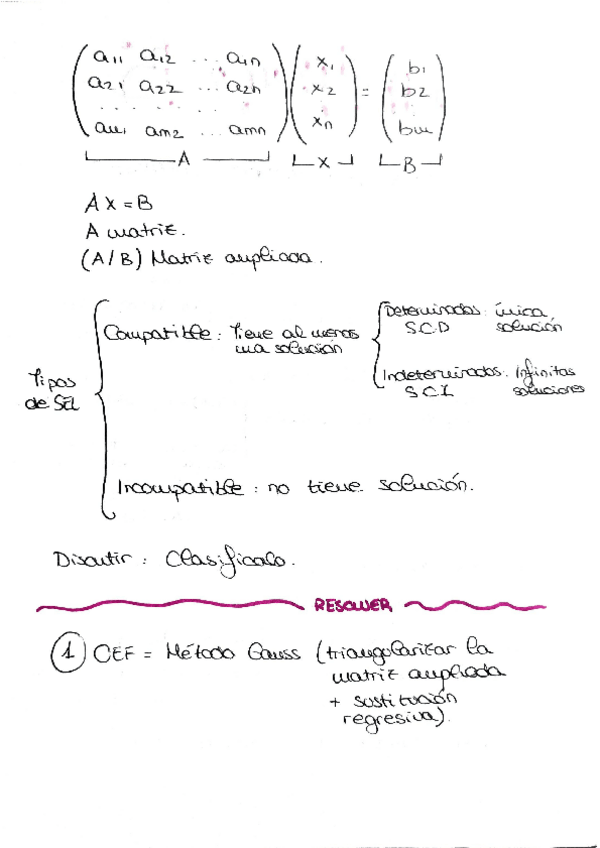 a11 a12 ... a1n x1 b1
a21 a22 ... a2n x2 = b2
. . . . . . .
am1 am2 ... amn xn bm
A X B
A X = B
A matriz.
(A/B) Matriz ampliada.
Tipos de SEL
Compatible: Tiene al menos
una solución
Determinados: única
S.C.D solución
Indeterminados: Infinitas
S.C.I soluciones
Incompatible: no tiene solución.
Discutir: Clasificalo.
RESOLVER
1 CEF = Método Gauss (triangularizar la
matriz ampliada
+ sustitución
regresiva).